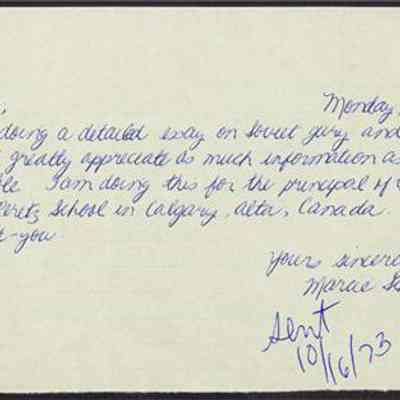 Monday,
doing a detailed essay on Soviet jury and
greatly appreciate as much information as
I am doing this for the principal of
Peretz School in Calgary, Alta, Canada.
-you
Yours sincere
Marae
Sent
10/16/73